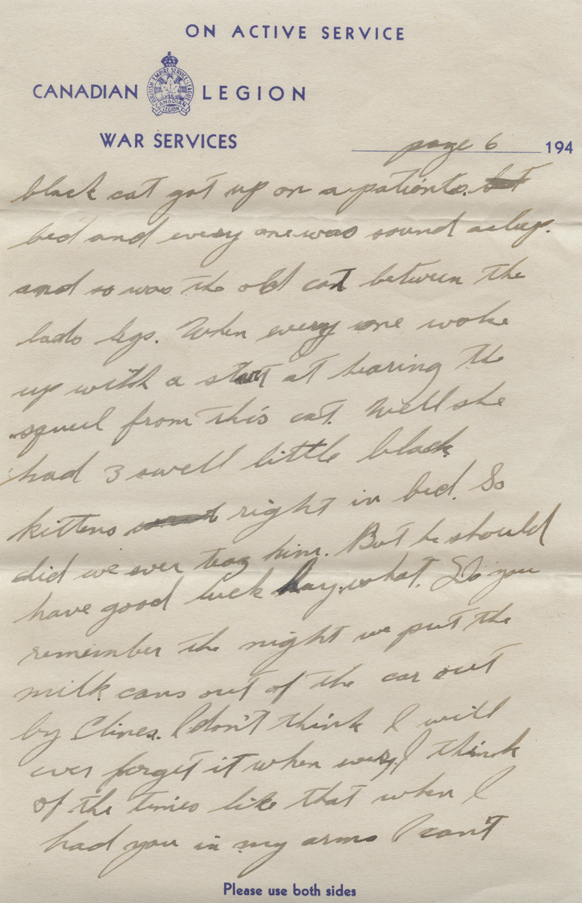 ON ACTIVE SERVICE
CANADIAN LEGION
WAR SERVICES
page 6 194
black cat got up on a patients
bed and every one was sound asleep.
and so was the old cat between the
lads legs. When every one woke
up with a start at hearing the
squeel from this cat. Well she
had 3 swell little black
kittens right in bed. So
did we ever teaz him. But he should
have good luck hay, what. Do you
remember the night we put the
milk cans out of the car out
by Clines. I don't think I will
ever forget it when every I think
of the times like that when I
had you in my arms I can't
Please use both sides